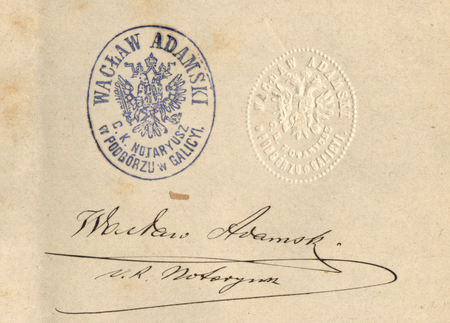 WACŁAW ADAMSKI
C. K. NOTARYUSZ
W PODGÓRZU W GALICYI.
WACŁAW ADAMSKI
C.K. NOTARYUSZ
W PODGÓRZU W GALICYI.
Wacław Adamski
c. k. Notaryusz